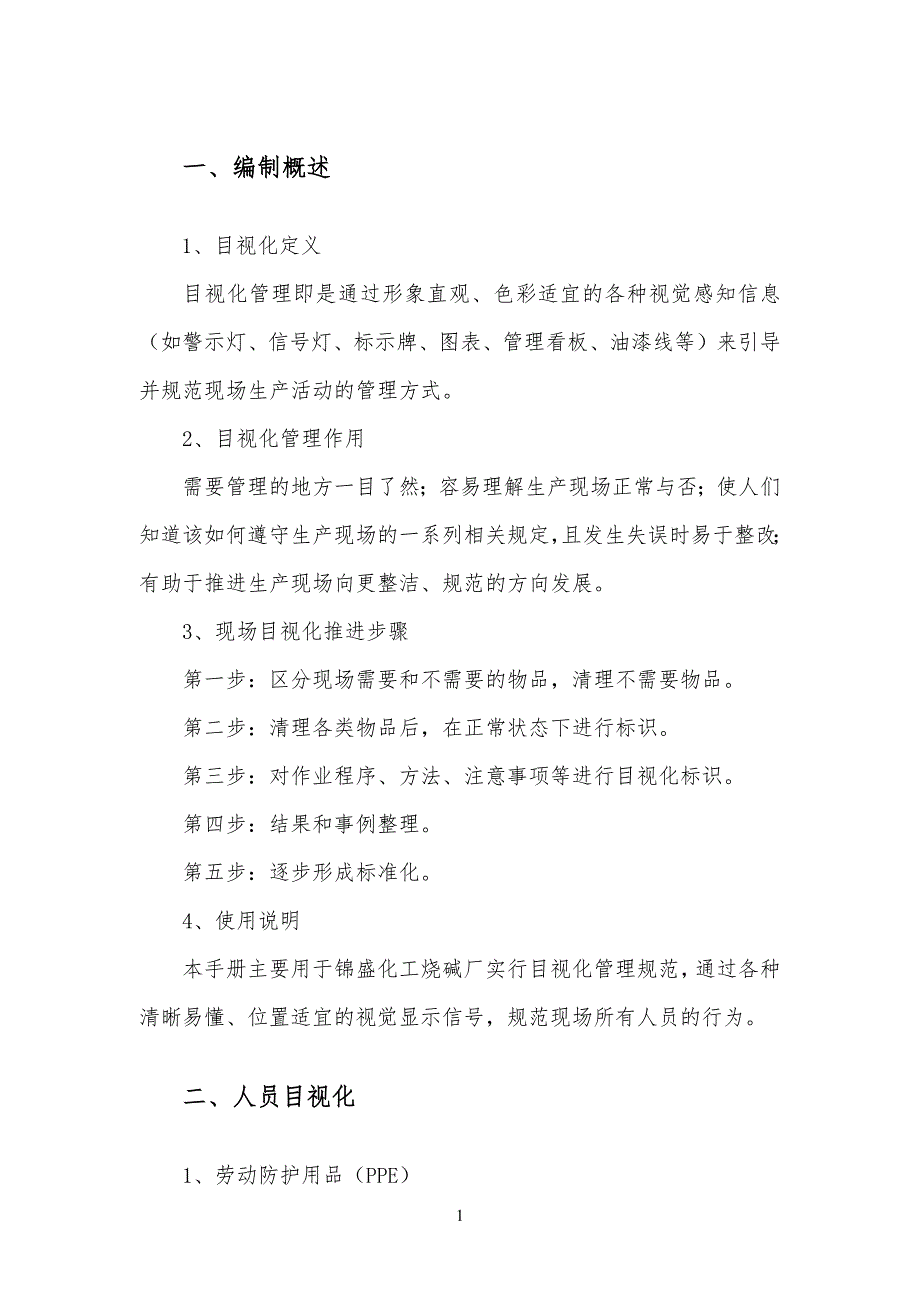 一、编制概述
1、目视化定义
目视化管理即是通过形象直观、色彩适宜的各种视觉感知信息
（如警示灯、信号灯、标示牌、图表、管理看板、油漆线等）来引导
并规范现场生产活动的管理方式。
2、目视化管理作用
需要管理的地方一目了然；容易理解生产现场正常与否；使人们
知道该如何遵守生产现场的一系列相关规定，且发生失误时易于整改；
有助于推进生产现场向更整洁、规范的方向发展。
3、现场目视化推进步骤
第一步：区分现场需要和不需要的物品，清理不需要物品。
第二步：清理各类物品后，在正常状态下进行标识。
第三步：对作业程序、方法、注意事项等进行目视化标识。
第四步：结果和事例整理。
第五步：逐步形成标准化。
4、使用说明
本手册主要用于锦盛化工烧碱厂实行目视化管理规范，通过各种
清晰易懂、位置适宜的视觉显示信号，规范现场所有人员的行为。
二、人员目视化
1、劳动防护用品（PPE）
1